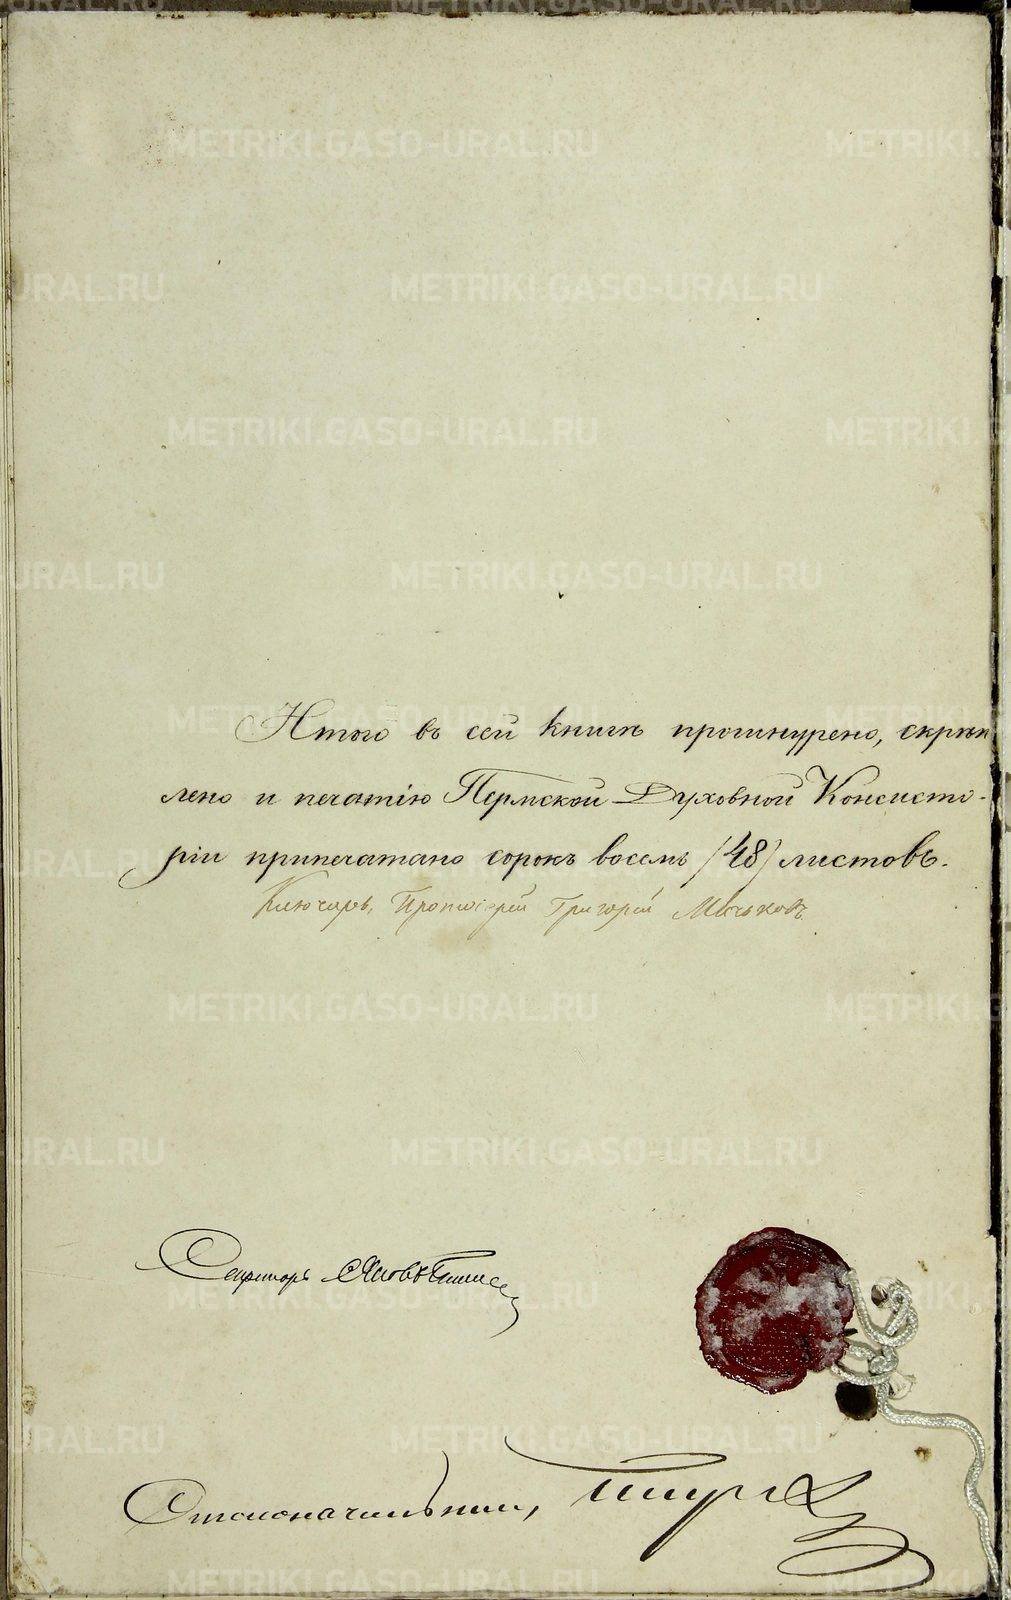 Итого въ сей книгѣ прошнурено, скрѣп
лено и печатію Пермской Духовной Консисто-
ріи припечатано сорокъ восемь /48/ листовъ.
Ключарь, Протоіерей Григорій
Секретарь
Столоначальникъ,
METRIKI.GASO-URAL.RU